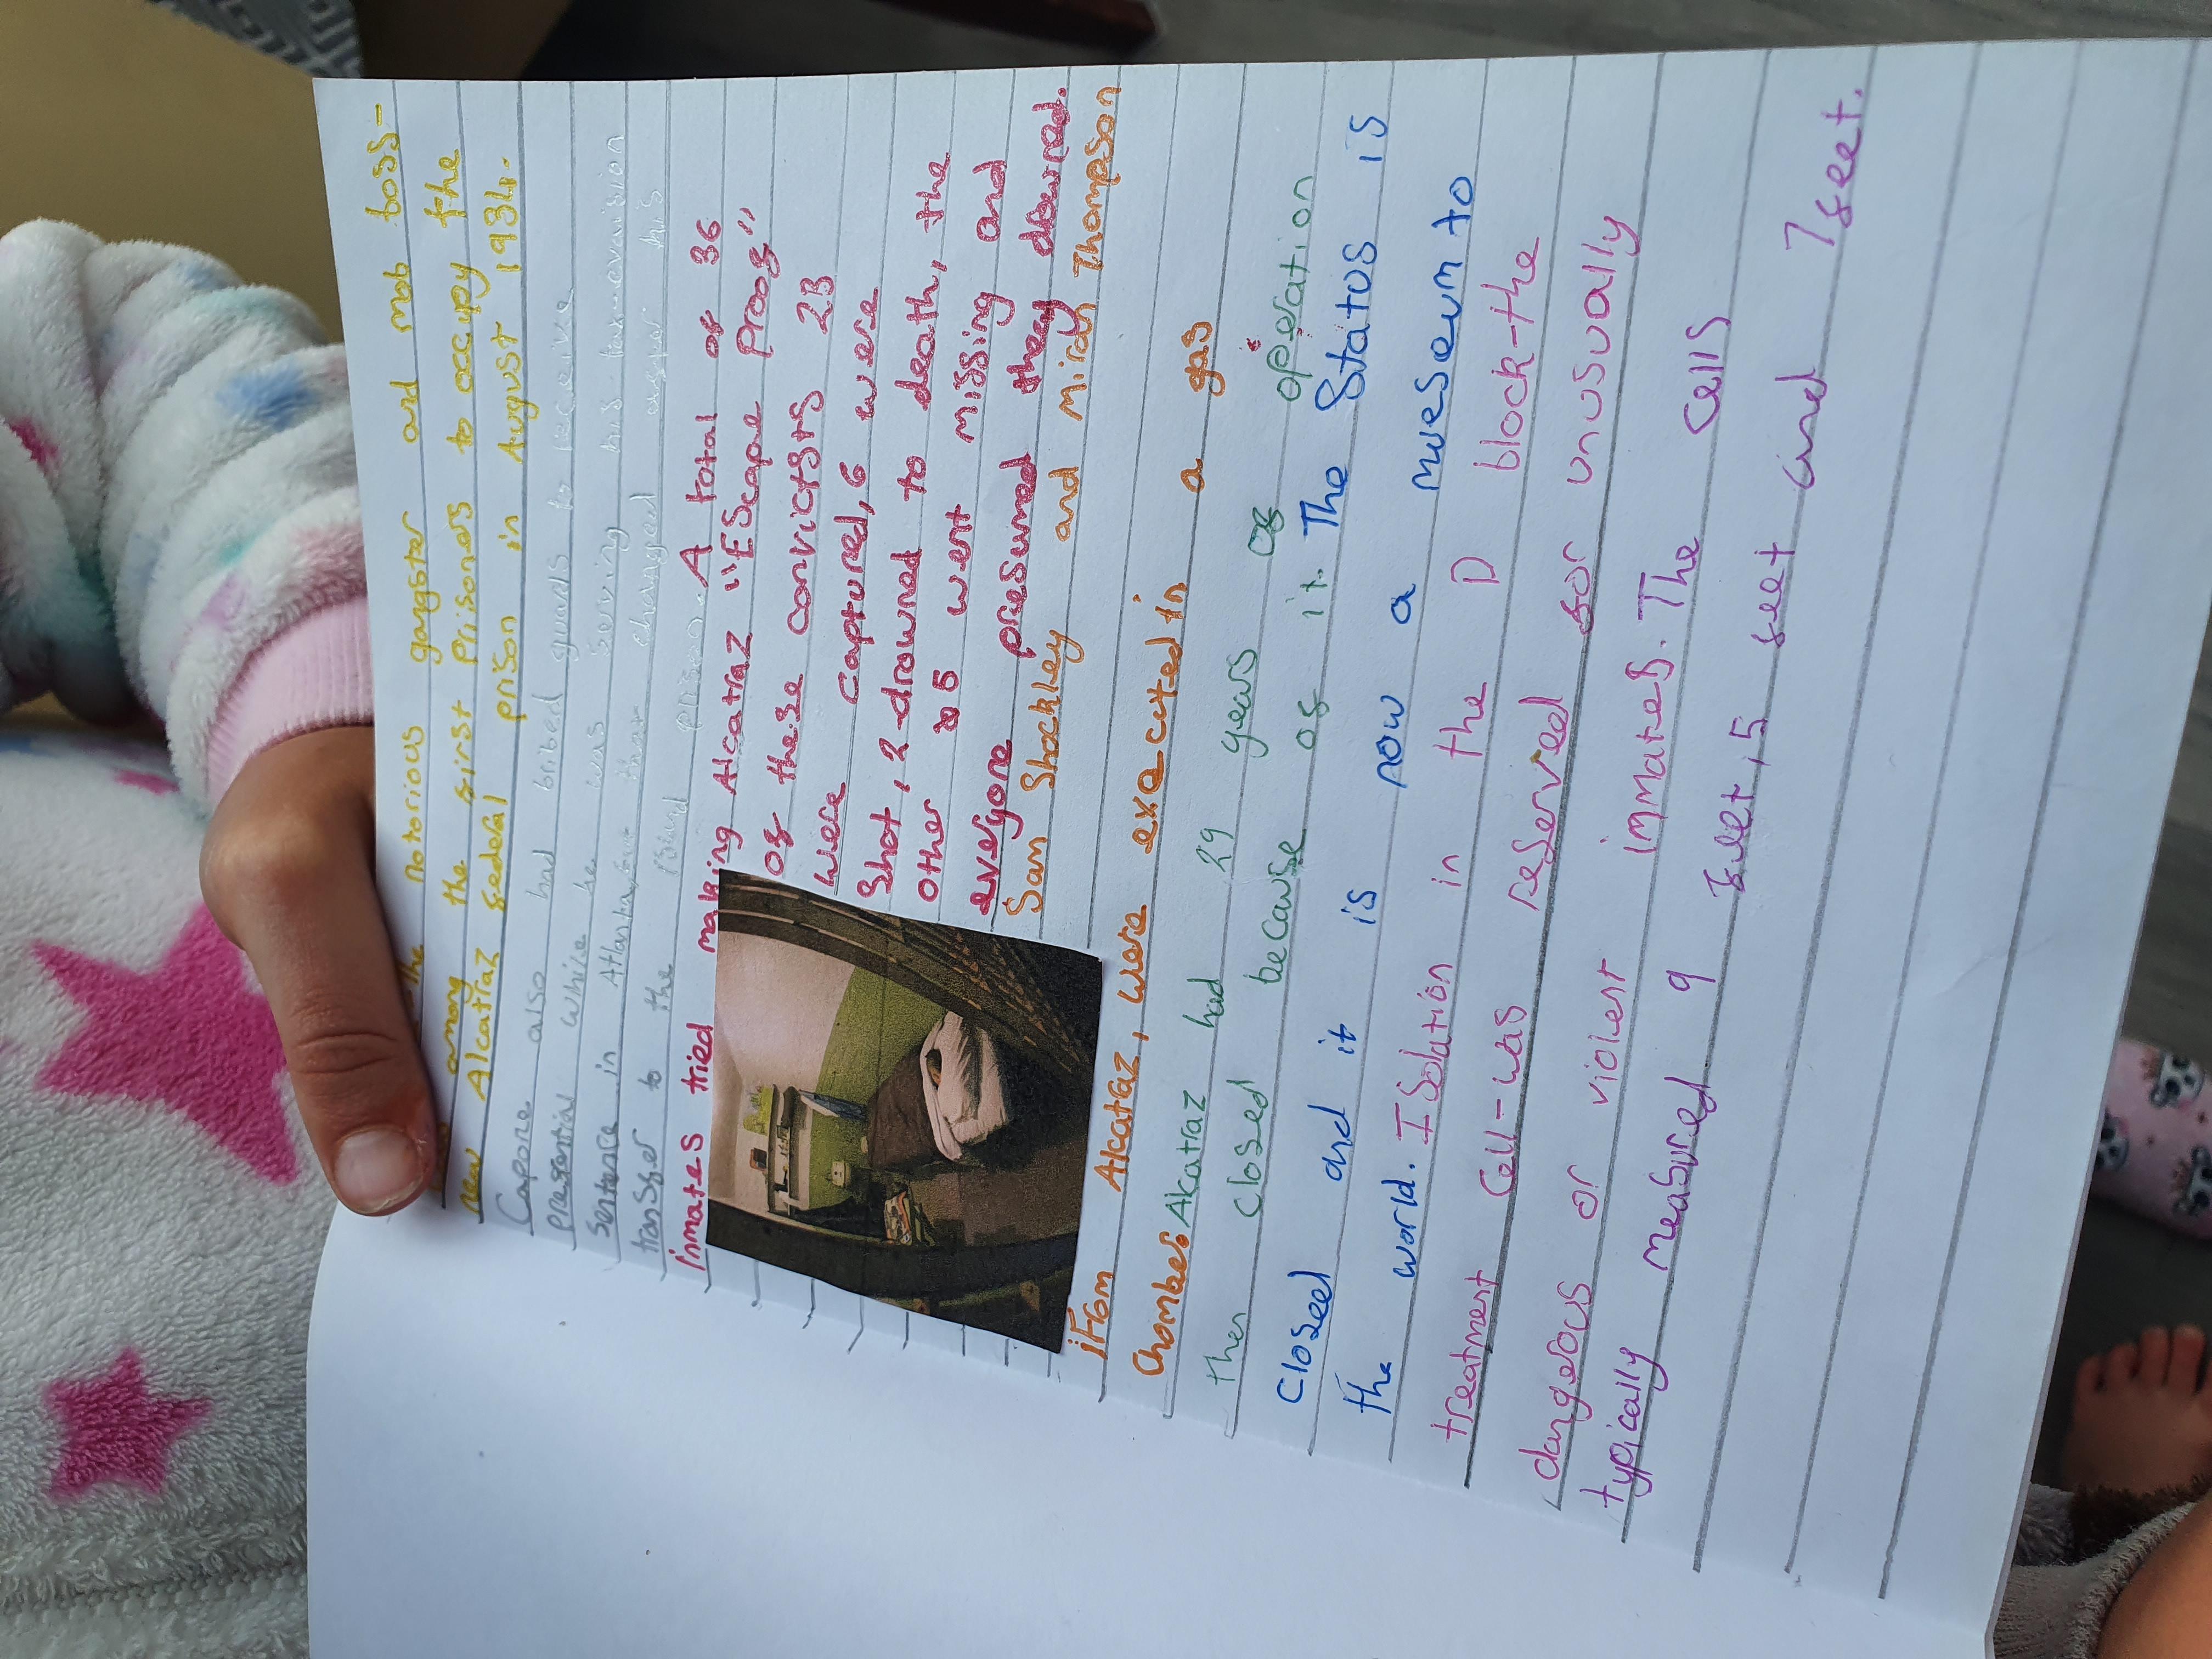 the notorious gangster and mob boss-
among the first prisoners to occupy the
new Alcatraz federal prison in August 1934.
Capone also had bribed guards to receive
presential while he was serving his tax-evaision
sentence in Atlanta, but that changed asper his
transfer to the island prison. A total of 36
inmates tried making Alcatraz "EScape Proof"
Of these convictsrs 23
were captured, 6 were
Shot, 2 drowned to death, the
other 5 went missing and
everyone presumed they downed.
Sam Shockley and Miran Thompson
from Alcataz, were executed in a gas
Chomber. Alcatraz had 29 years of operation
then closed because of it. The Status is
Closeed and it is now a mueseum to
the world. ISolation in the D block-the
treatment Cell-was reserved for unusually
dangerous or violent inmates. The Cells
typically measured 9 feet, 5 feet and 7 feet.